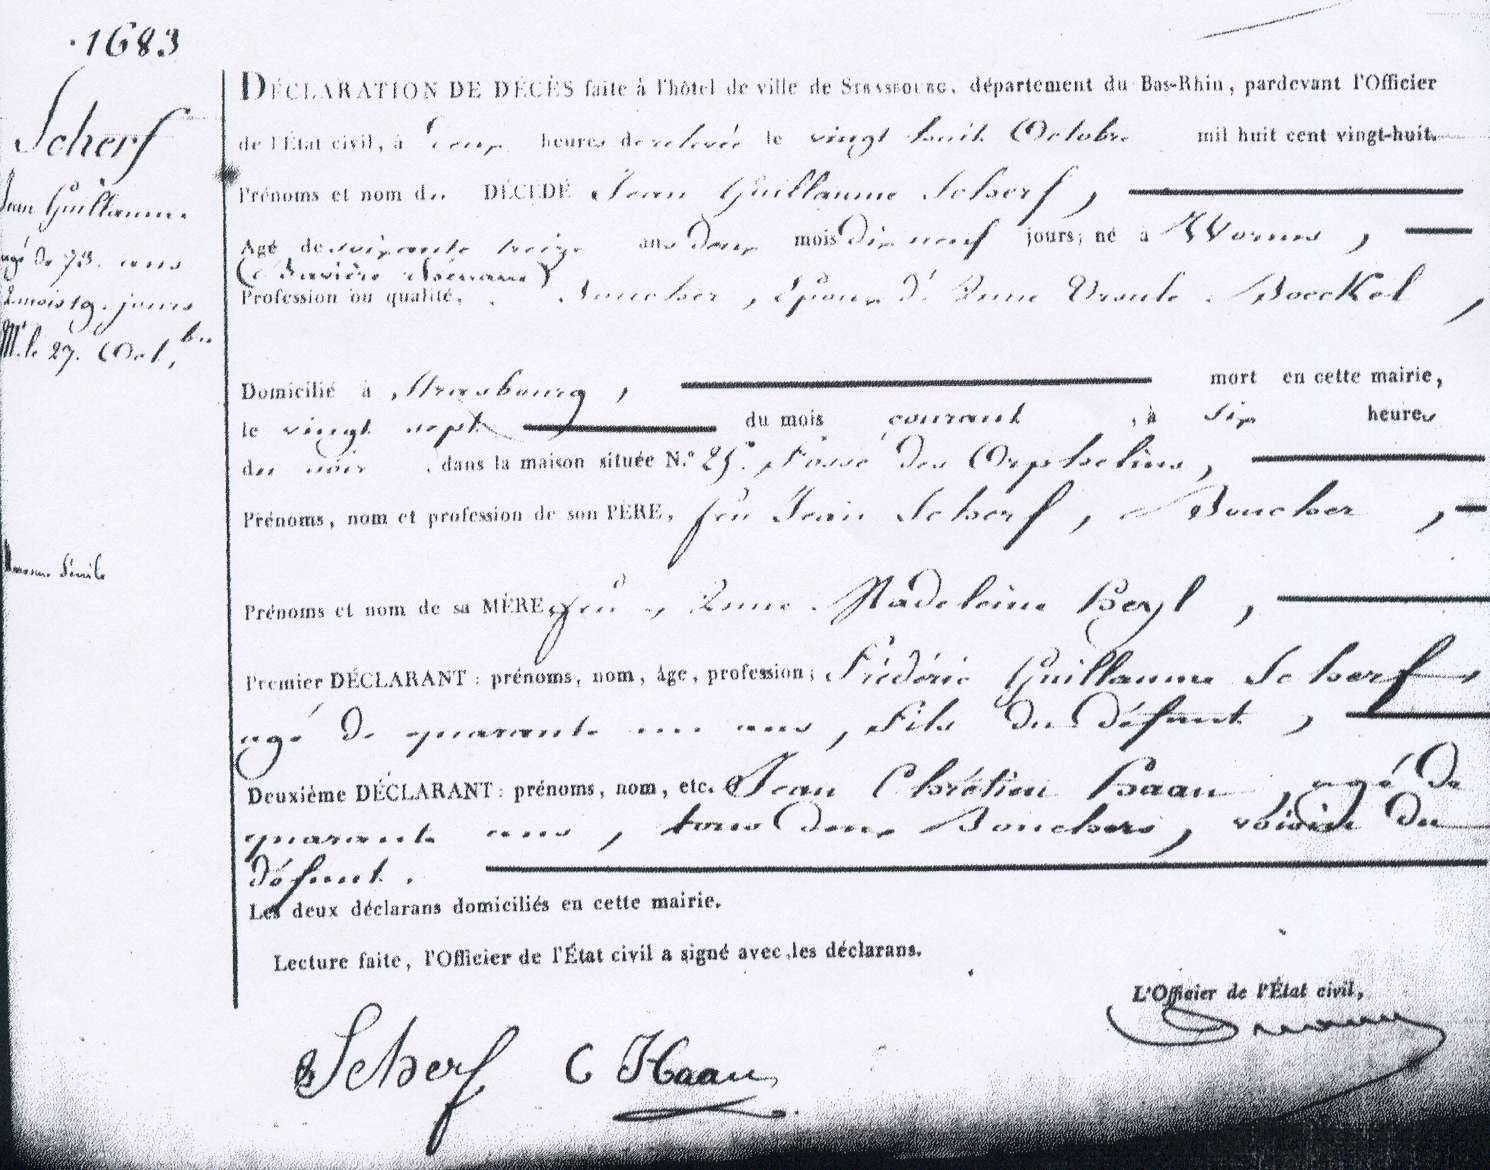 1683
Scherf
Jean Guillaume
agé de 73. ans
2 mois 19. jours
M.t le 27. Oct.bre
Sénile
DÉCLARATION DE DÉCÈS faite à l'hôtel de ville de STRASBOURG, département du Bas-Rhin, pardevant l'Officier
de l'État civil, à Deux heures de relevée le vingt huit Octobre mil huit cent vingt-huit.
Prénoms et nom du DÉCÉDÉ Jean Guillaume Scherf,
Agé de soixante treize ans deux mois dix neuf jours; né à Worms,
(Bavière Rhénane)
Profession ou qualité, Boucher, Epoux d' Anne Ursule Boeckel,
Domicilié à Strasbourg, mort en cette mairie,
le vingt sept du mois courant, à six heures
du soir, dans la maison située N.° 25. Fossé des Orphelins,
Prénoms, nom et profession de son PÈRE, feu Jean Scherf, Boucher,
Prénoms et nom de sa MÈRE feu Anne Madeleine Heyl,
Premier DÉCLARANT: prénoms, nom, âge, profession; Frédéric Guillaume Scherf
agé de quarante un ans, fils du défunt,
Deuxième DÉCLARANT: prénoms, nom, etc. Jean Chrétien Haan, agé de
quarante ans, tous deux Bouchers, voisin du
défunt.
Les deux déclarans domiciliés en cette mairie.
Lecture faite, l'Officier de l'État civil a signé avec les déclarans.
L'Officier de l'État civil,
Scherf C Haan